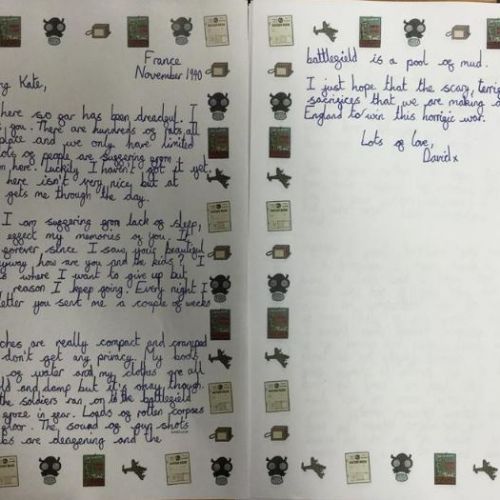 France
November 1940
Kate,
here so far has been dreadful. I
you. There are hundreds of rats all
plate and we only have limited
of people are suffering from
here. Luckily I haven't got it yet.
here isn't very nice but at
gets me through the day.
I am suffering from lack of sleep,
effect my memories of you. It
forever since I saw your beautiful
how are you and the kids? I
where I want to give up but
reason I keep going. Every night I
letter you sent me a couple of weeks
are really compact and cramped
don't get any privacy. My boots
of water and my clothes are all
and damp but it's okay though.
the soldiers ran on to the battlefield
freze in fear. Loads of rotten corpses
floor. The sound of gun shots
are deafening and the
battlefield is a pool of mud.
I just hope that the scary,
sacrifices that we are making
England to win this horrific war.
Lots of love,
David x